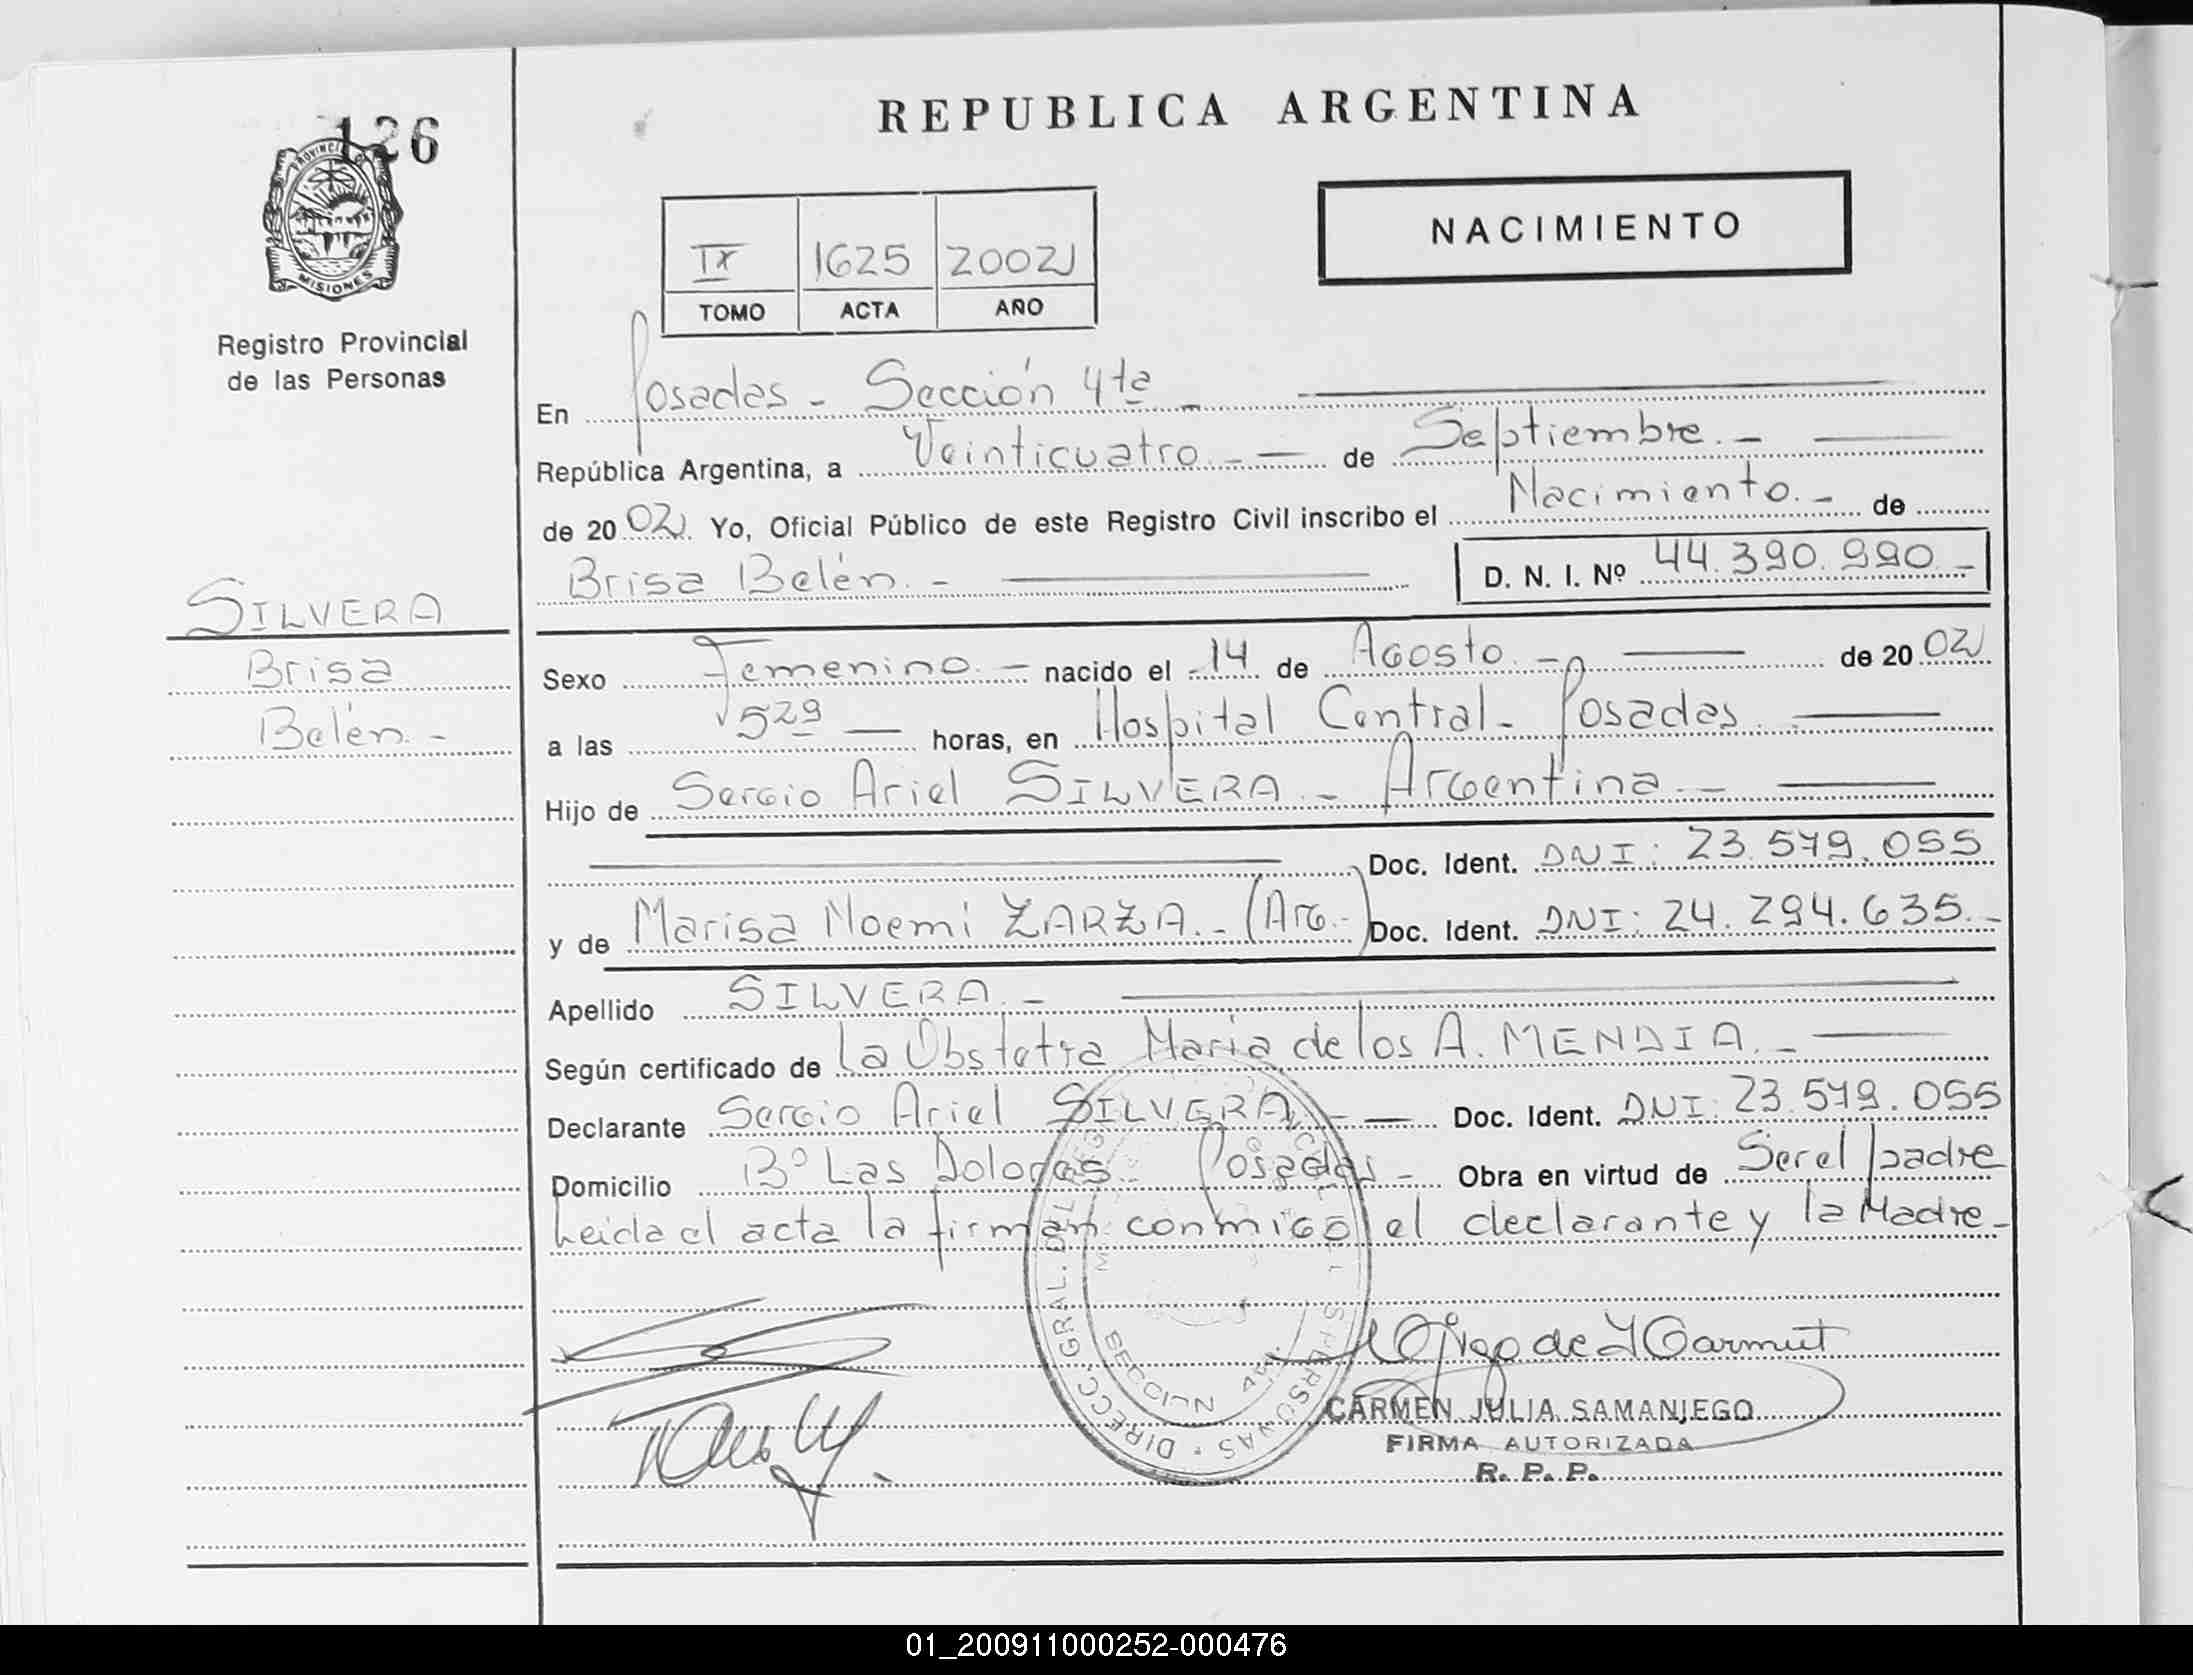 126
PROVINCIA DE
MISIONES
Registro Provincial
de las Personas
SILVERA
Brisa
Belén.-
REPUBLICA ARGENTINA
NACIMIENTO
IX 1625 2002
TOMO ACTA AÑO
En Posadas - Sección 4ta -
República Argentina, a Veinticuatro.- de Septiembre.-
de 2002. Yo, Oficial Público de este Registro Civil inscribo el Nacimiento.- de
Brisa Belén.- D. N. I. Nº 44.390.990.-
Sexo Femenino.- nacido el 14 de Agosto.- de 2002
a las 5 29 horas, en Hospital Central- Posadas.
Hijo de Sergio Ariel SILVERA.- Argentina.-
Doc. Ident. DNI: 23.579.055
y de Marisa Noemi ZARZA.- (Arg.-) Doc. Ident. DNI: 24.294.635.-
Apellido SILVERA.-
Según certificado de la Obstetra Maria de los A. MENDIA.-
Declarante Sergio Ariel SILVERA.- Doc. Ident. DNI: 23.579.055
Domicilio Bº Las Dolores - Posadas - Obra en virtud de Ser el padre
Leida el acta la firman conmigo el declarante y la Madre-
DIRECC. GRAL. DEL REG. PERSONAS
SECCION 4ta.
CARMEN JULIA SAMANIEGO
FIRMA AUTORIZADA
R. P. P.
01_200911000252-000476